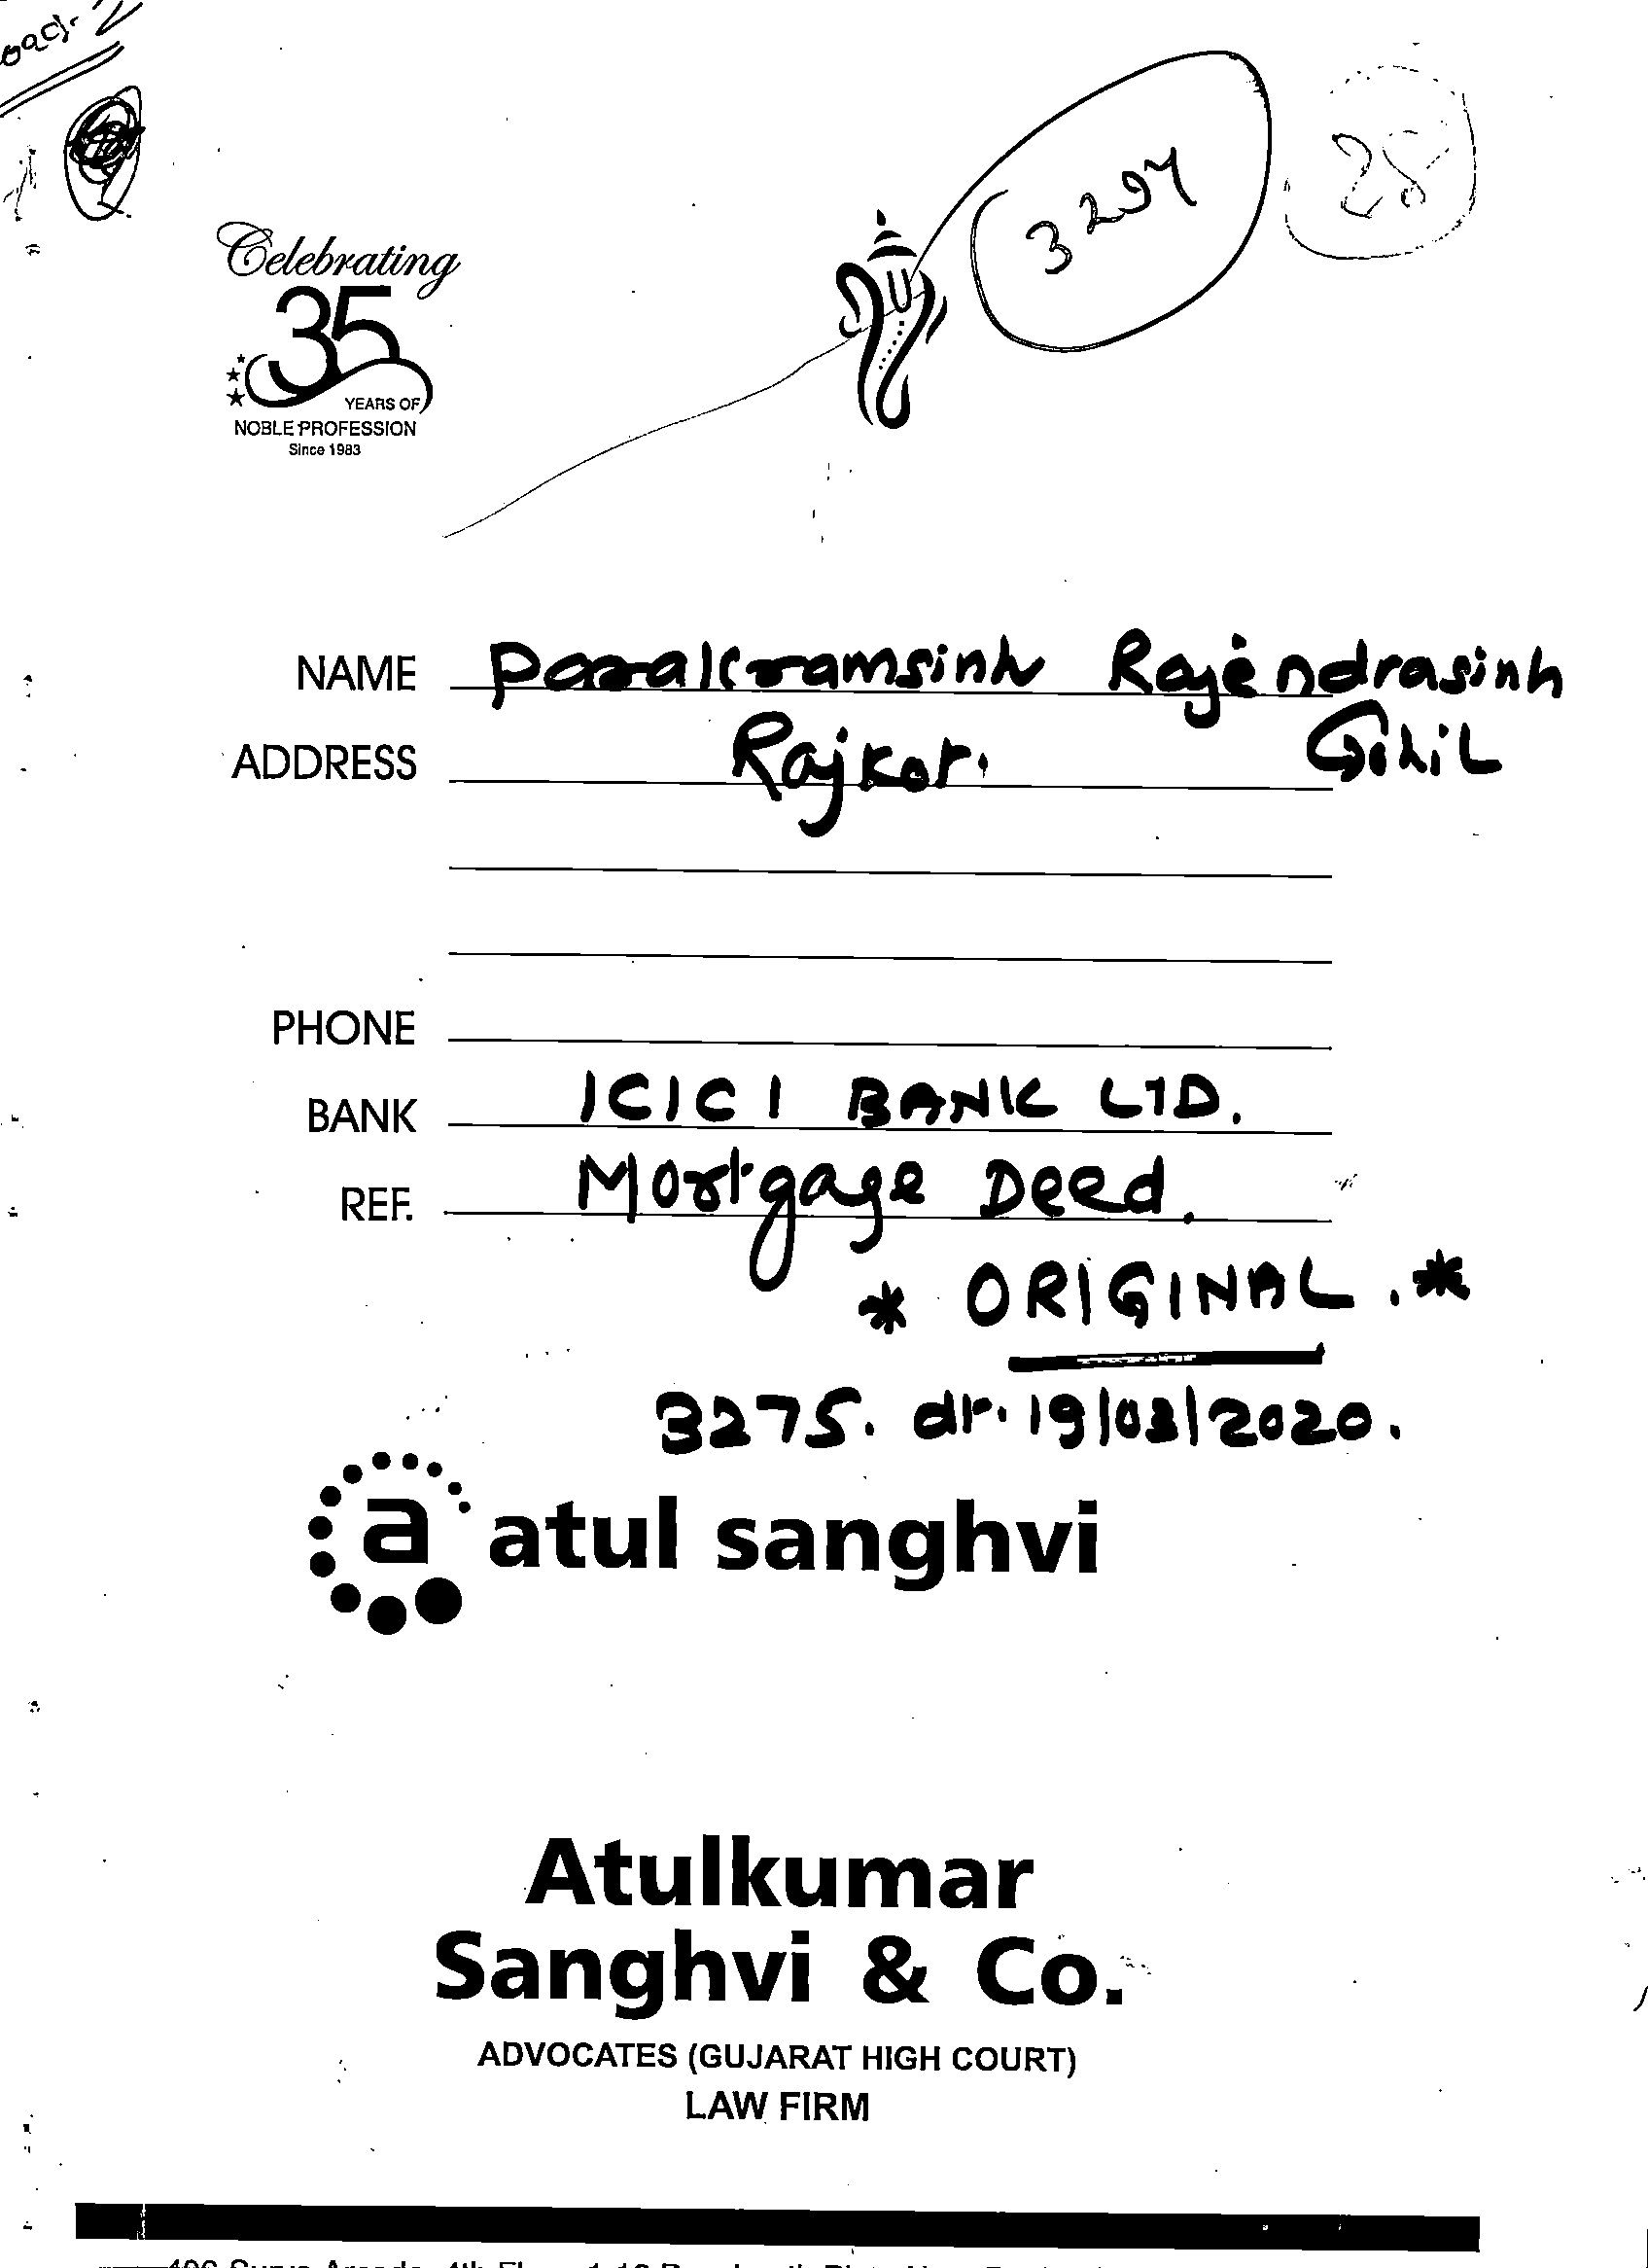 3294
28
Celebrating
35
YEARS OF
NOBLE PROFESSION
Since 1983
NAME Parakramsinh Rajendrasinh
Gohil
ADDRESS Rajkot.
PHONE
BANK ICICI BANK LTD.
REF. Mortgage Deed.
* ORIGINAL. *
3275. dt. 19/03/2020.
a atul sanghvi
Atulkumar
Sanghvi & Co.
ADVOCATES (GUJARAT HIGH COURT)
LAW FIRM